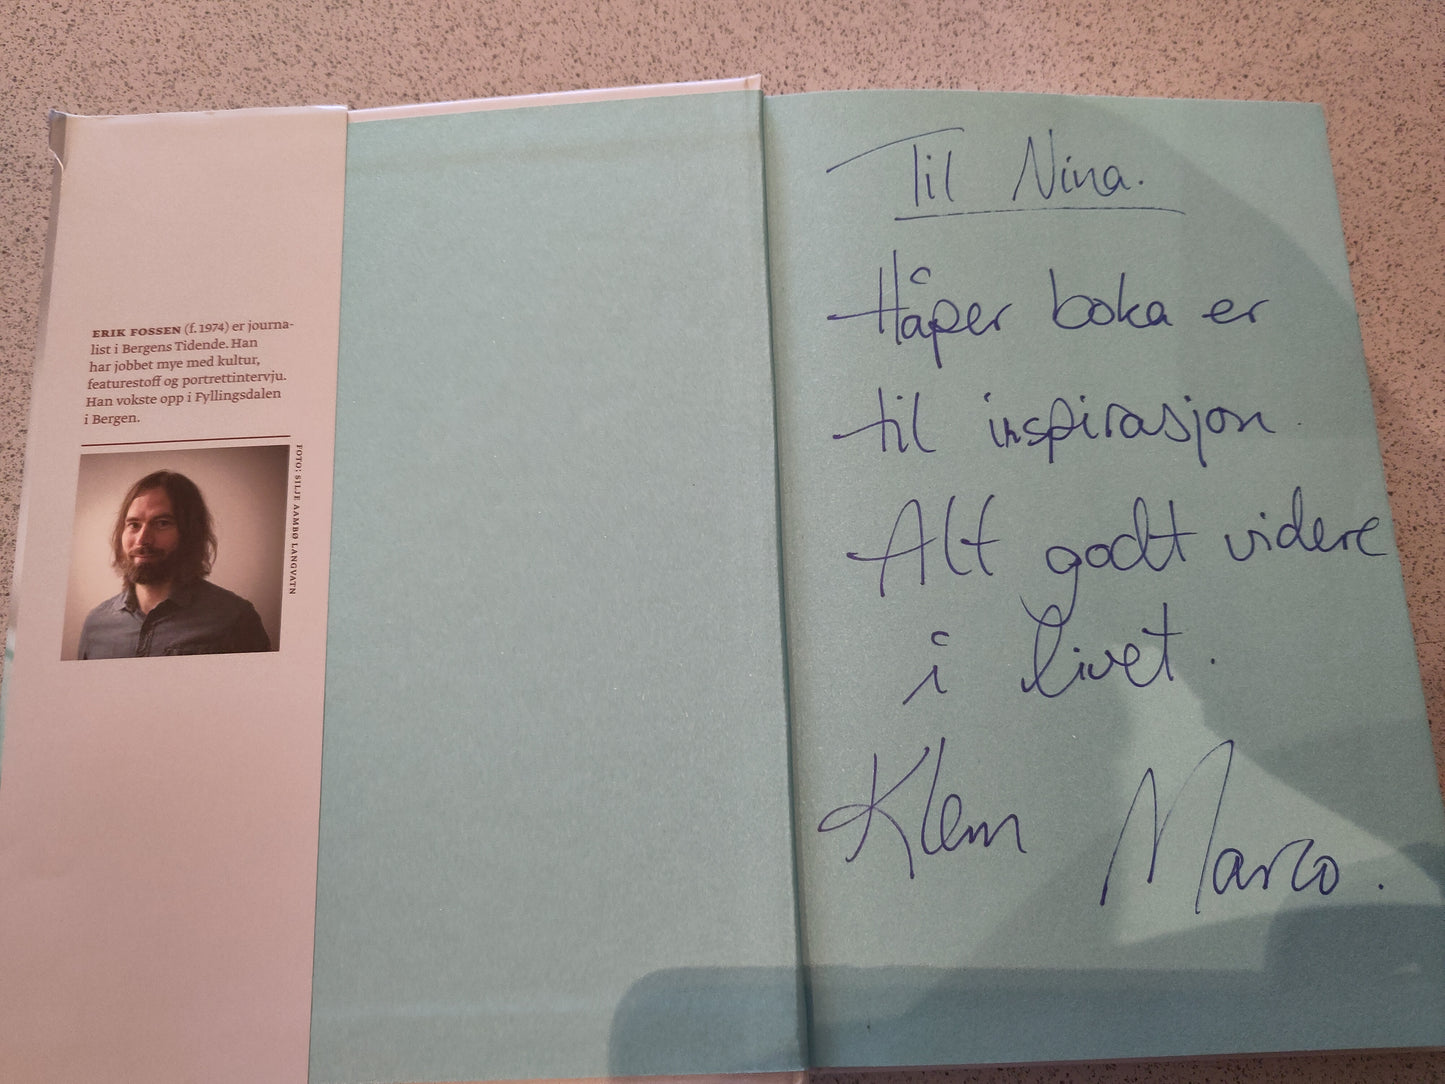 ERIK FOSSEN (f. 1974) er journa-
list i Bergens Tidende. Han
har jobbet mye med kultur,
featurestoff og portrettintervju.
Han vokste opp i Fyllingsdalen
i Bergen.
FOTO: SILJE AAMBØ LANGVATN
Til Nina.
Håper boka er
til inspirasjon.
Alt godt videre
i livet.
Klem Marco.